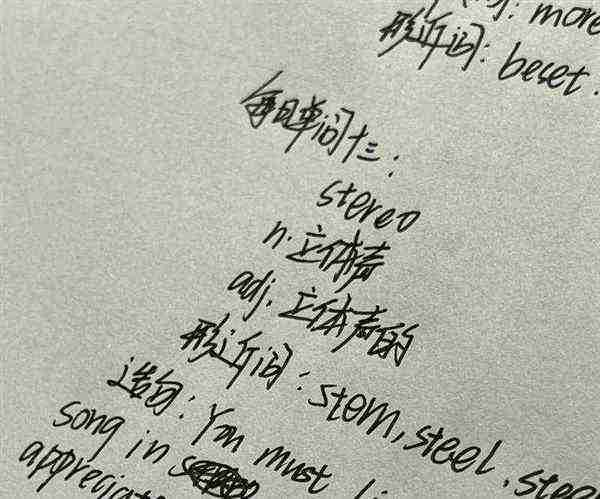 : more
形近词: beset.
每日单词十三:
stereo
n. 立体声
adj. 立体声的
形近词: stem, steel, stee
造句: You must li
song in
appreciat